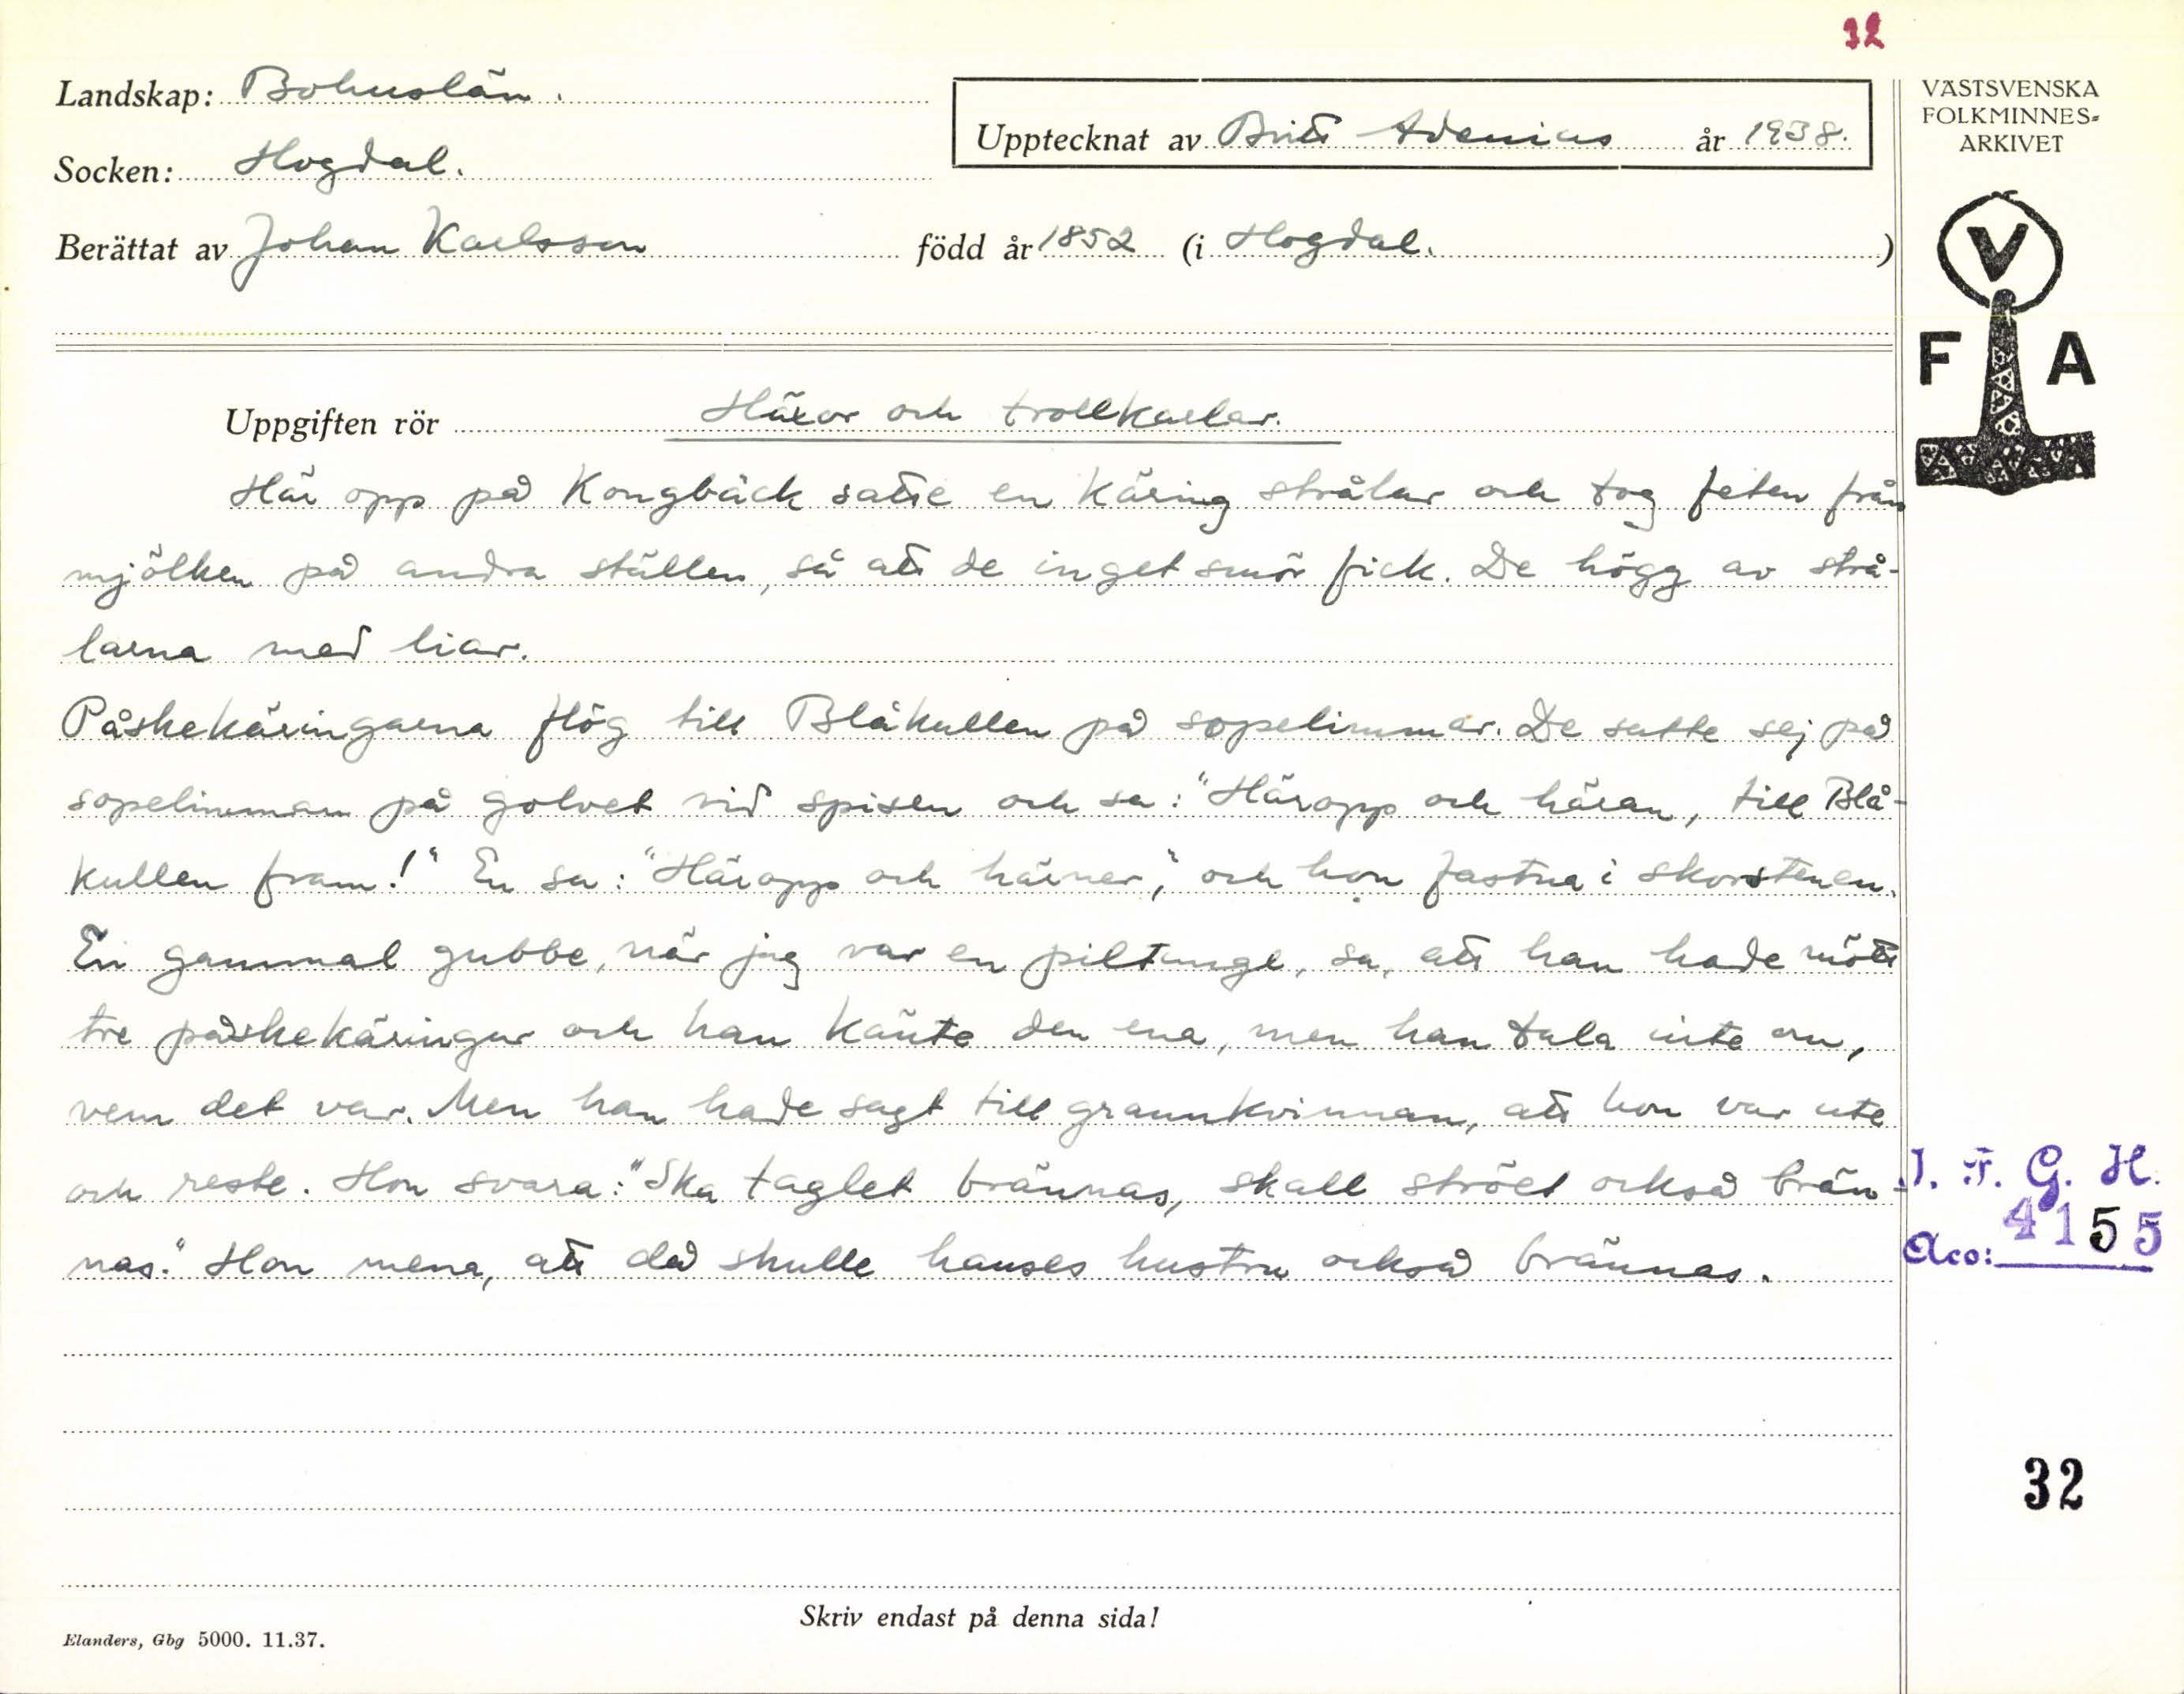 32
Landskap: Bohuslän.
VÄSTSVENSKA
FOLKMINNES=
ARKIVET
Upptecknat av Britt Adenius år 1938.
Socken: Hogdal.
Berättat av Johan Karlsson född år 1852 (i Hogdal.)
V
F A
Uppgiften rör Häxor och trollkarlar.
Här opp på Kongbäck satte en käring strålar och tog feten från
mjölken på andra ställen, så att de inget smör fick. De högg av strå-
larna med liar.
Påskekäringarna flög till Blåkullen på sopelimmar. De satte sej på
sopelimman på golvet vid spisen och sa: "Häropp och häran, till Blå-
kullen fram!" En sa: "Häropp och härner," och hon fastna i skorstenen.
En gammal gubbe, när jag var en piltunge, sa, att han hade mött
tre påskekäringar och han kände den ena, men han tala inte om,
vem det var. Men han hade sagt till grannkvinnan, att hon var ute
och reste. Hon svara: "Ska taglet brännas, skall ströet också brän-
nas." Hon mena, att då skulle hanses hustru också brännas.
I. F. G. H.
Acc: 4155
32
Skriv endast på denna sida!
Elanders, Gbg 5000. 11.37.